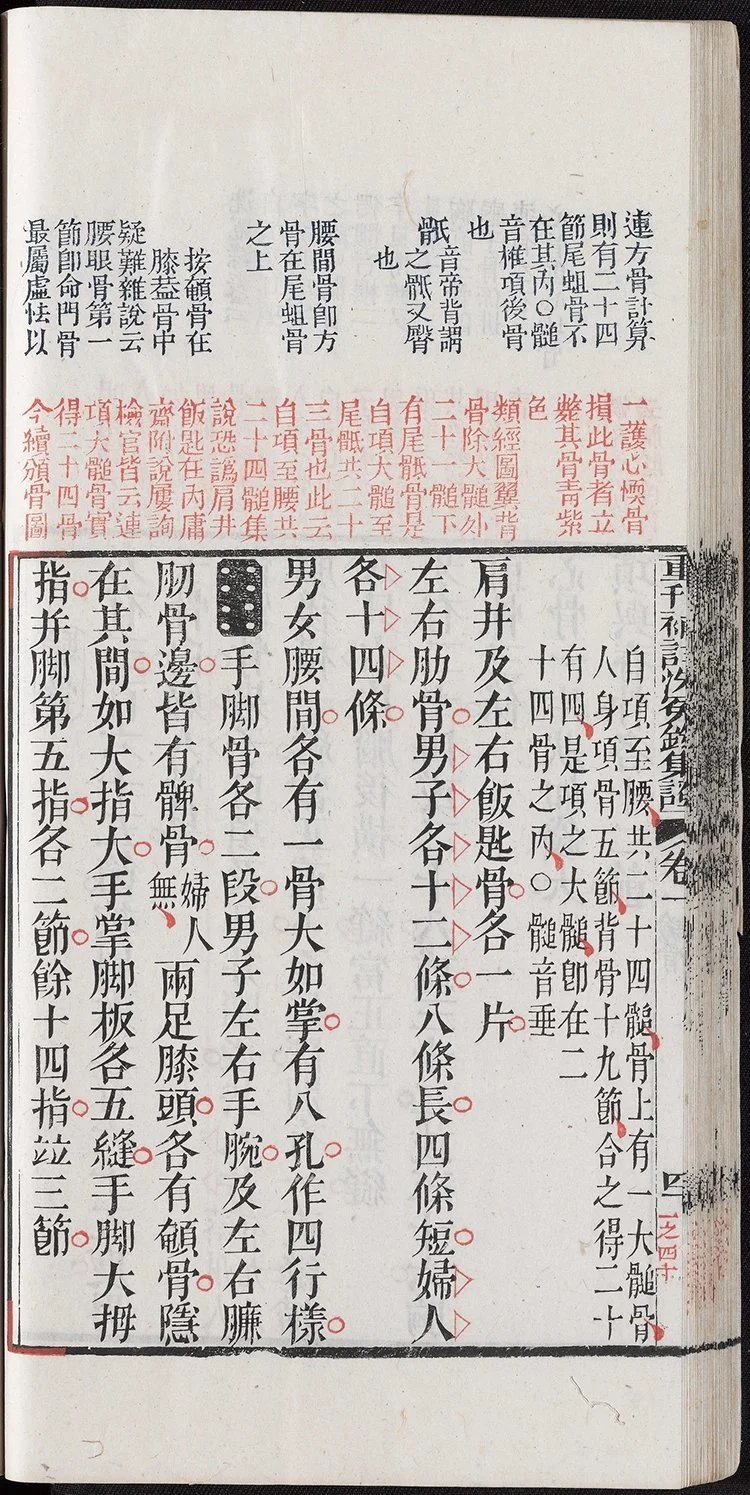 連方骨計算
則有二十四
節尾蛆骨不
在其內○髓
音椎項後骨
也
骶音帝背謂
之骶又臀
也
腰間骨卽方
骨在尾蛆骨
之上
按顉骨在
膝蓋骨中
疑難雜說云
腰眼骨第一
節卽命門骨
最屬虛怯以
一護心愞骨
損此骨者立
斃其骨青紫
色
類經圖翼背
骨除大髓外
二十一髓下
有尾骶骨是
自項大髓至
尾骶共二十
三骨也此云
自項至腰共
二十四髓集
說恐譌肩井
飯匙在內庸
齋附說屢詢
檢官皆云連
項大髓骨實
得二十四骨
今續頒骨圖
重刊補註洗冤錄集證 卷一 四 一之四十
自項至腰共二十四髓骨上有一大髓骨
人身項骨五節背骨十九節合之得二十
有四是項之大髓卽在二
十四骨之內○髓音垂
肩井及左右飯匙骨各一片
左右肋骨男子各十二條八條長四條短婦人
各十四條
男女腰間各有一骨大如掌有八孔作四行樣
手腳骨各二段男子左右手腕及左右臁
肕骨邊皆有髀骨婦人無兩足膝頭各有顉骨隱
在其間如大指大手掌腳板各五縫手腳大拇
指幷腳第五指各二節餘十四指竝三節